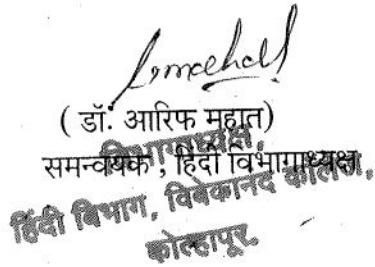 ( डॉ. आरिफ महात)
समन्वयक , हिंदी विभागाध्यक्ष
विभागाध्यक्ष,
हिंदी विभाग, विवेकानंद कॉलेज,
कोल्हापूर.